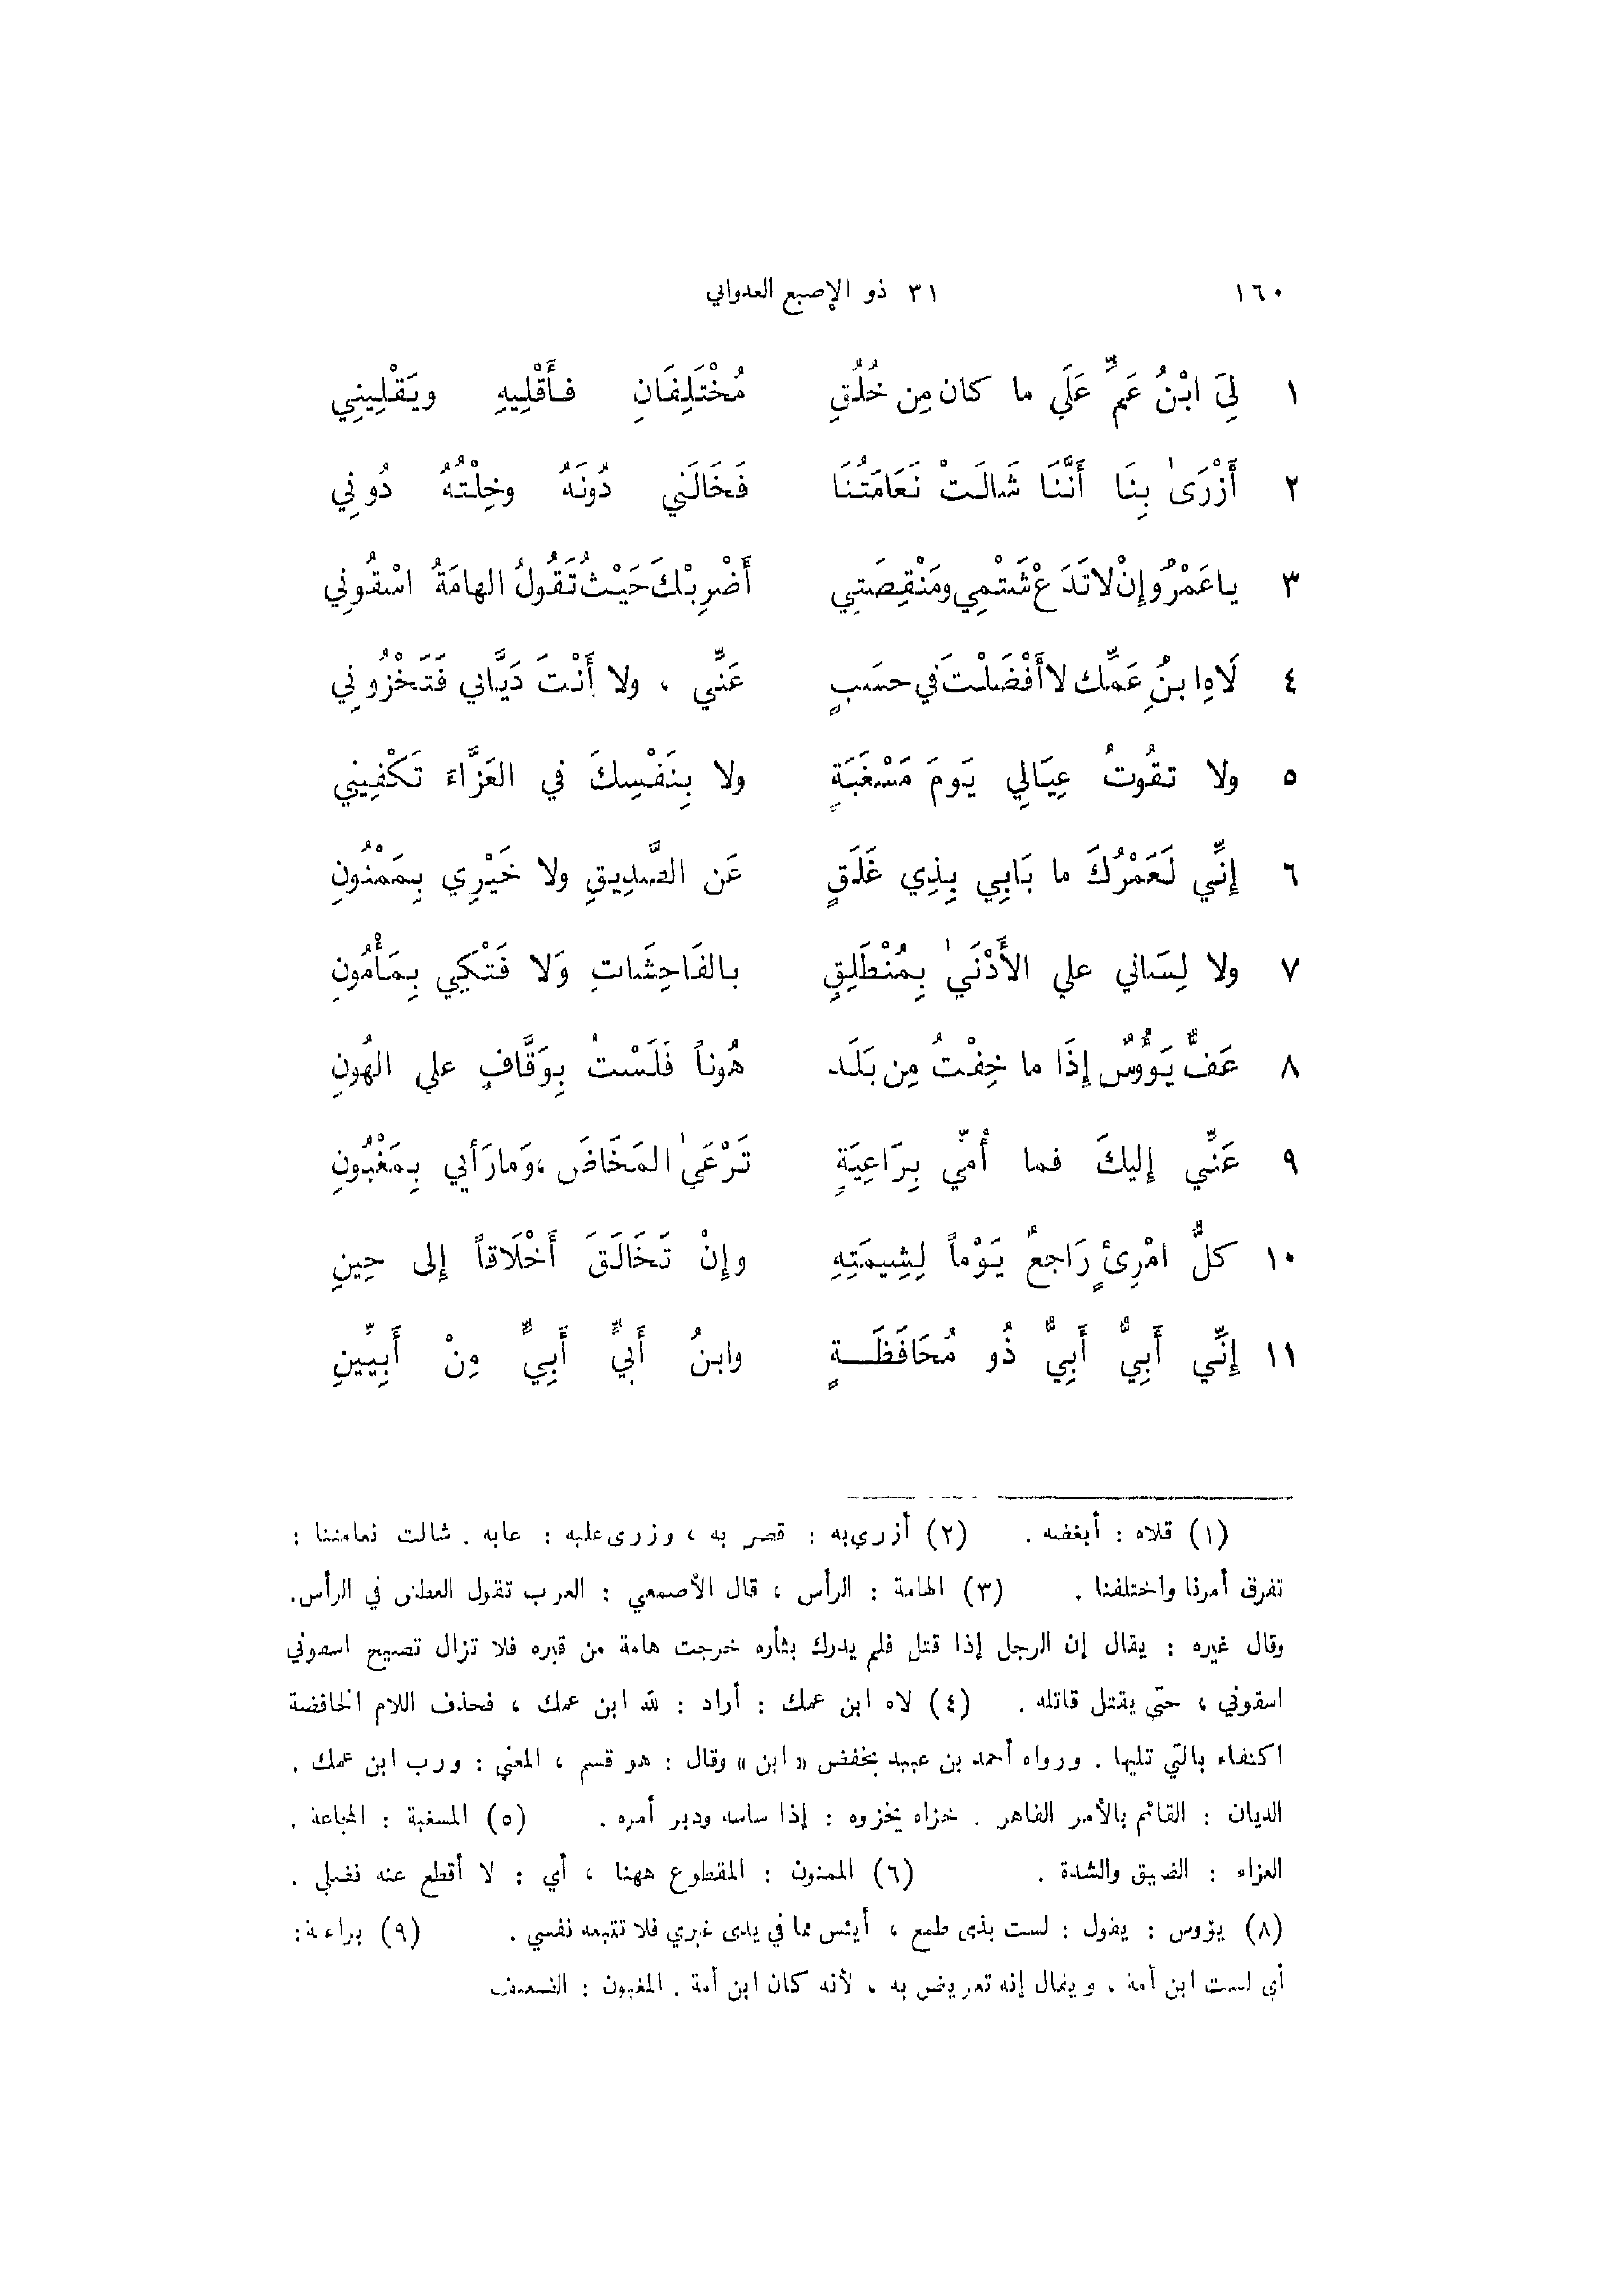 ١٦٠ ٣١ ذو الإصبع العدواني
١ لِيَ ابْنُ عَمٍّ عَلَي ما كان مِن خُلُقٍ مُخْتَلِفَانِ فأَقْلِيهِ ويَقْلِينِي
٢ أَزْرَىٰ بِنَا أَنَّنَا شَالَتْ نَعَامَتُنَا فَخَالَنِي دُونَهُ وخِلْتُهُ دُونِي
٣ يا عَمْرُو إِنْ لا تَدَعْ شَتْمِي ومَنْقِصَتِي أَضْرِبْكَ حَيْثُ تَقُولُ الهامَةُ اسْقُونِي
٤ لَاهِ ابنُِ عَمِّك لا أَفْضَلْتَ في حسَبٍ عَنِّي ، ولا أنْتَ دَيَّاني فَتَخْزُونِي
٥ ولا تقُوتُ عِيَالِي يَومَ مَسْغَبَةٍ ولا بِنَفْسِكَ في العَزَّاءَ تَكْفِينِي
٦ إِنِّي لَعَمْرُكَ ما بَابِي بِذِي غَلَقٍ عَن الصَّدِيقِ ولا خَيْرِي بِمَمْنُونِ
٧ ولا لِسَاني علي الأَدْنَىٰ بِمُنْطَلِقٍ بالفَاحِشَاتِ وَلا فَتْكِي بِمَأْمُونِ
٨ عَفٌّ يَؤُوسٌ إِذَا ما خِفْتُ مِن بَلَد هُوناً فَلَسْتُ بِوَقَّافٍ علي الهُونِ
٩ عَنِّي إليكَ فما أُمِّي بِرَاعِيَةٍ تَرْعَىٰ المَخَاضَ ، وَما رَأيي بِمَغْبُونِ
١٠ كلُّ امْرِئٍ رَاجعٌ يَوْماً لِشِيمَتِهِ وإِنْ تَخَالَقَ أَخْلَاقاً إِلى حِينِ
١١ إِنِّي أَبِيٌّ أَبِيٌّ ذُو مُحَافَظَةٍ وابنُ أَبيٍّ أَبِيٍّ مِنْ أَبِيِّينِ
(١) قلاه : أبغضه . (٢) أزري به : قصر به ، وزرى عليه : عابه . شالت نعامتنا :
تفرق أمرنا واختلفنا . (٣) الهامة : الرأس ، قال الأصمعي : العرب تقول العطش في الرأس.
وقال غيره : يقال إن الرجل إذا قتل فلم يدرك بثأره خرجت هامة من قبره فلا تزال تصيح اسقوني
اسقوني ، حتى يقتل قاتله . (٤) لاه ابن عمك : أراد : لله ابن عمك ، فحذف اللام الخافضة
اكتفاء بالتي تليها . ورواه أحمد بن عبيد بخفض «ابن» وقال : هو قسم ، المعني : ورب ابن عمك .
الديان : القائم بالأمر القاهر . خزاه يخزوه : إذا ساسه ودبر أمره . (٥) المسغبة : المجاعة .
العزاء : الضيق والشدة . (٦) الممنون : المقطوع ههنا ، أي : لا أقطع عنه فضلي .
(٨) يؤوس : يقول : لست بذى طمع ، أيئس مما في يدى غيري فلا تتبعه نفسي . (٩) براعية:
أي لست ابن أمة ، ويقال إنه تعريض به ، لأنه كان ابن أمة . المغبون : الضعيف